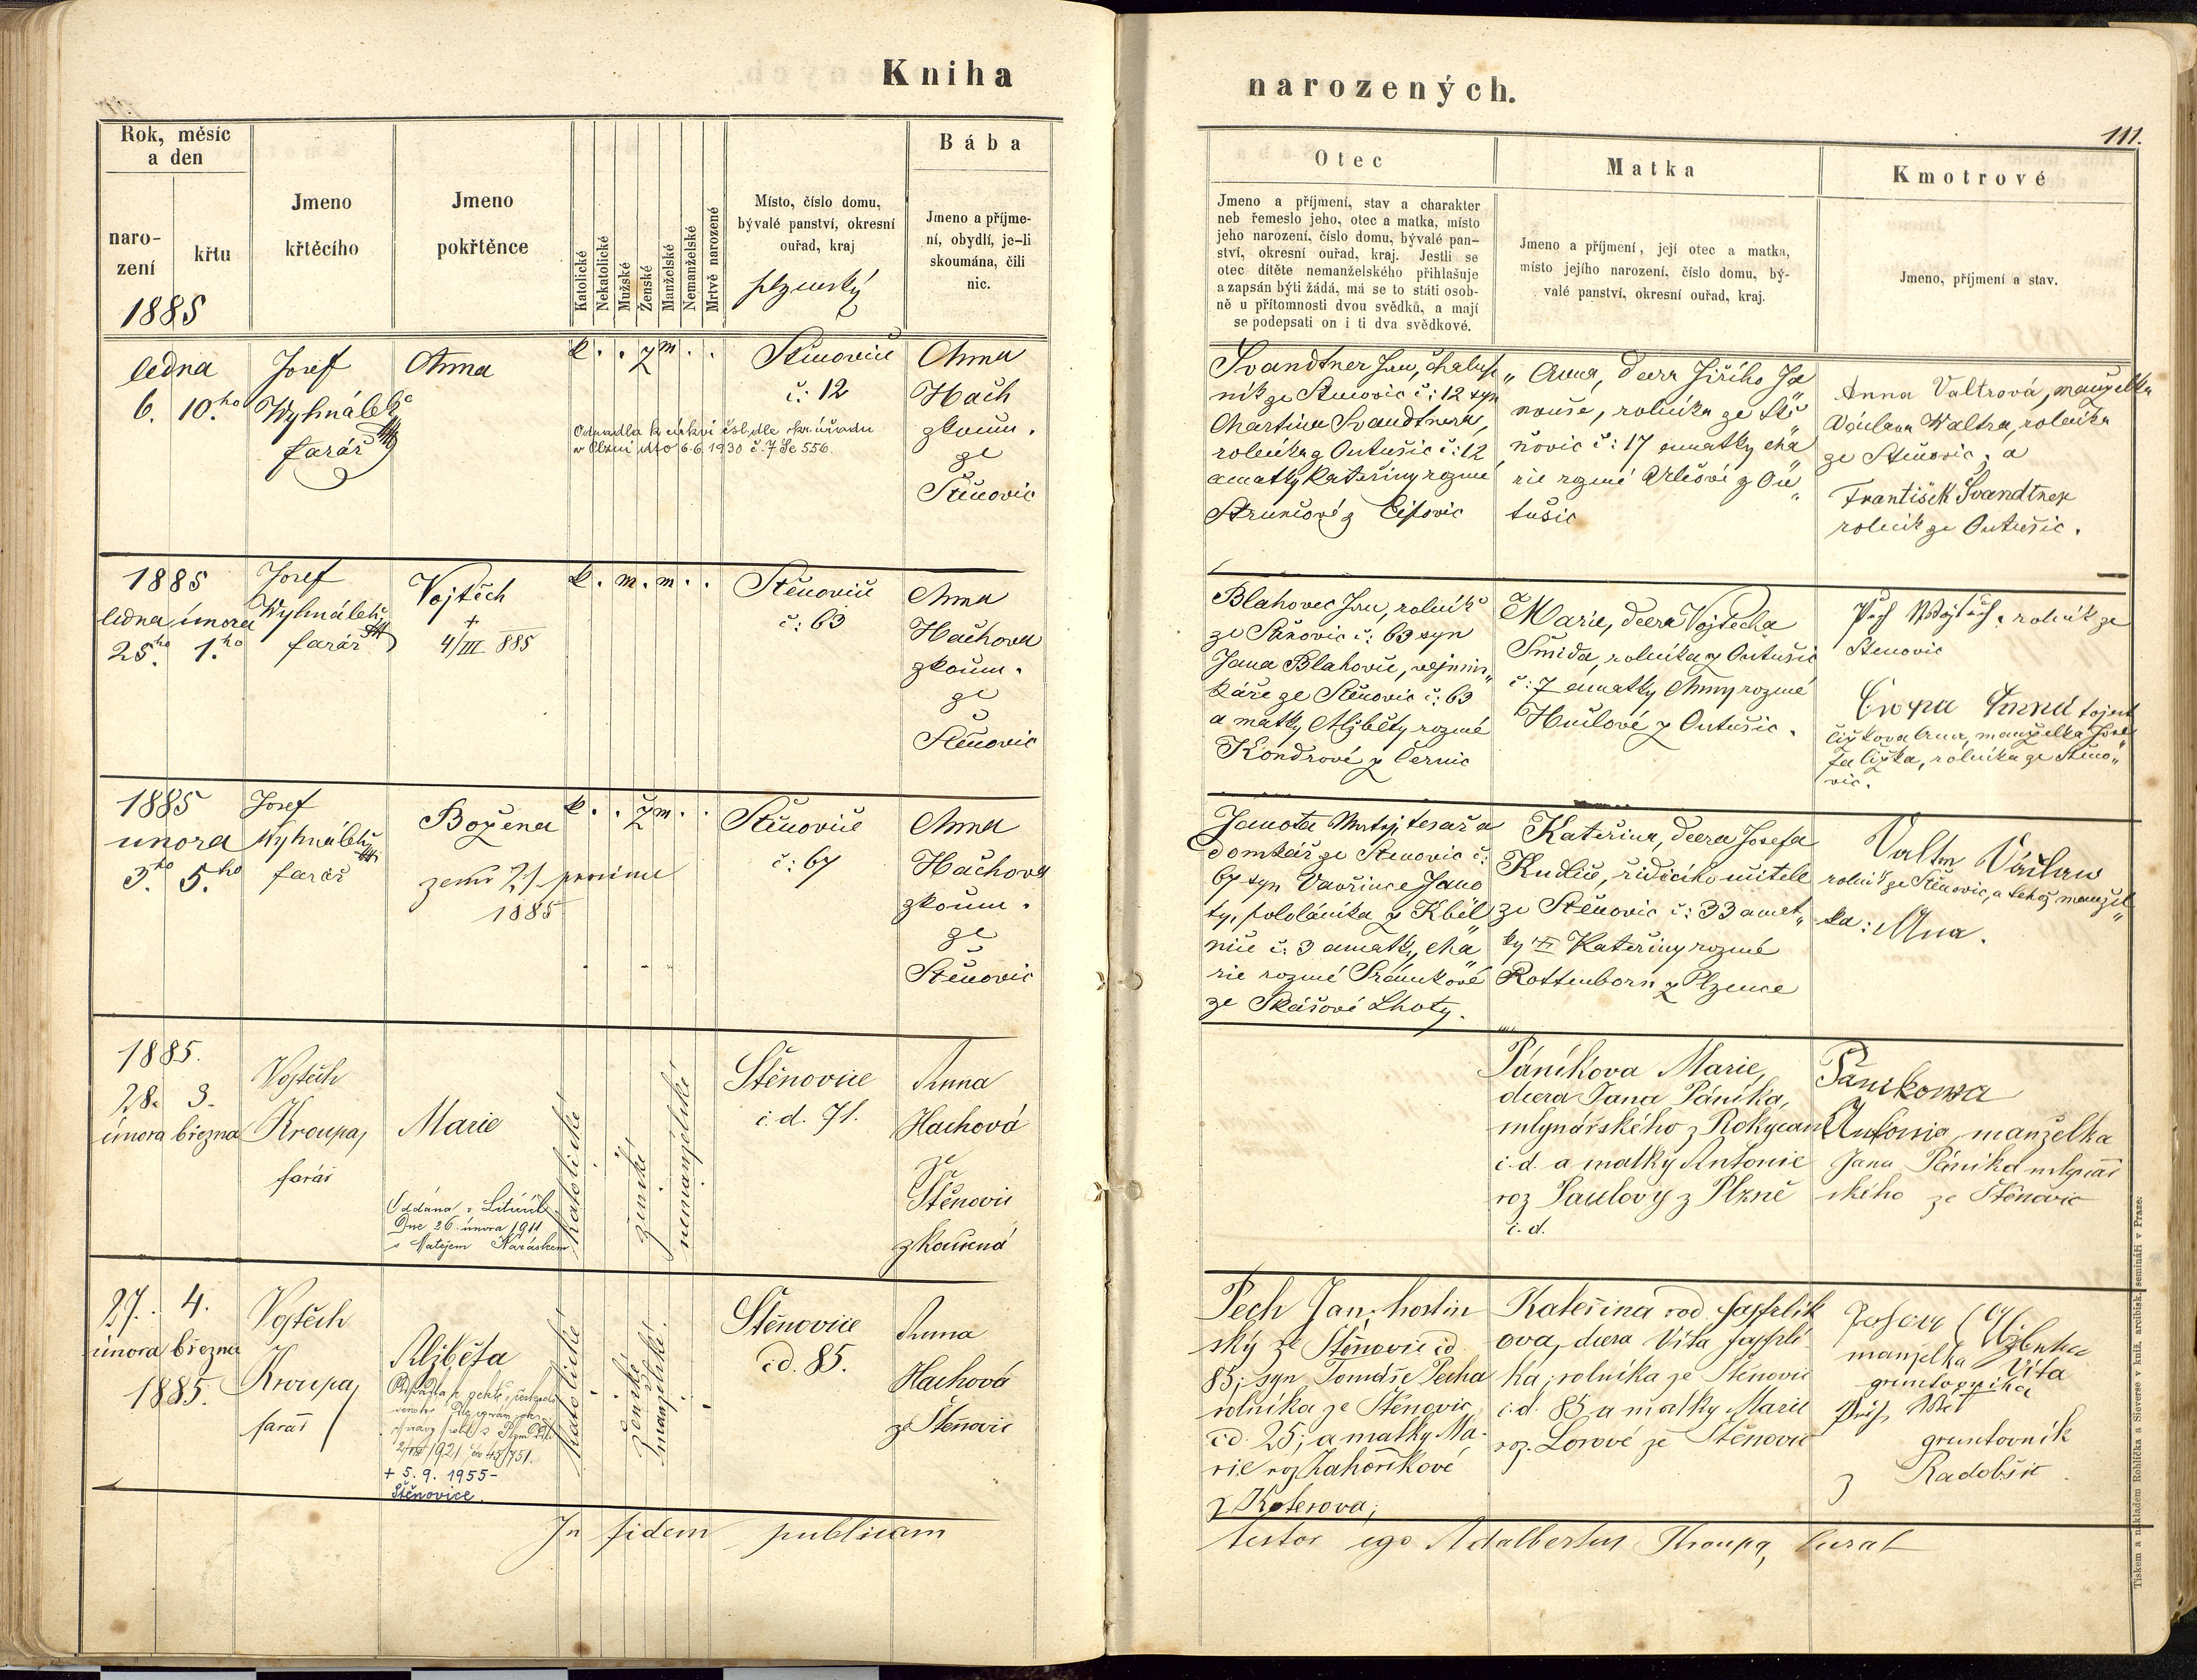 Kniha
narozených.
111.
Rok, měsíc
a den
naro-
zení
křtu
1885
Jmeno
křtěcího
Jmeno
pokřtěnce
Katolické
Nekatolické
Mužské
Ženské
Manželské
Nemanželské
Mrtvě narozené
Místo, číslo domu,
bývalé panství, okresní
ouřad, kraj
plzenský
Bába
Jmeno a příjme-
ní, obydlí, je-li
skoumána, čili
nic.
Otec
Jmeno a příjmení, stav a charakter
neb řemeslo jeho, otec a matka, místo
jeho narození, číslo domu, bývalé pan-
ství, okresní ouřad, kraj. Jestli se
otec dítěte nemanželského přihlašuje
a zapsán býti žádá, má se to státi osob-
ně u přítomnosti dvou svědků, a mají
se podepsati on i ti dva svědkové.
Matka
Jmeno a příjmení, její otec a matka,
místo jejího narození, číslo domu, bý-
valé panství, okresní ouřad, kraj.
Kmotrové
Jmeno, příjmení a stav.
ledna
6. 10.ho
Josef
Wyhnálek
farář
Anna
k. . . ž m . .
Odpadla k církvi čsl. dle okr. úřadu
v Plzni dto 6.6.1930 č.7
Štěnovice
č: 12
Anna
Hach
zkoum.
ze
Štěnovic
Švandtner Jan, chalup
ník ze Štěnovic č: 12 syn
Martina Švandtnera,
rolníka z Outušic č: 12
a matky Kateřiny rozené
Anna, dcera Jiřího Ja
nouše, rolníka ze Stě
novic č: 17 a matky Ma
rie rozené z Ou
tušic
Anna Valtrová, manželka
Václava Waltra, rolníka
ze Štěnovic, a
František Švandtner
rolník ze Outušic.
1885
ledna února
25.ho 1.ho
Josef
Wyhnálek
farář
Vojtěch
+
4/III 885
k. m. m . .
Štěnovice
č: 63
Anna
Hachova
zkoum.
ze
Štěnovic
Blahovec Jan, rolník
ze Štěnovic č: 63 syn
Jana Blahovce, vejmin
káře ze Štěnovic č: 63
a matky Alžběty rozené
Kondrové z Černic
Marie, dcera Vojtěcha
Šmida, rolníka z Outušic
č: 7 a matky Anny rozené
z Outušic.
rolník ze
Štěnovic
Anna tojest
čižkova Anna, manželka Jose
fa čižka, rolníka ze Štěno
vic.
1885
února
3.ho 5.ho
Josef
Wyhnálek
farář
Božena
zemř. 21. prosince
1885
k. . . ž m. . .
Štěnovice
č: 67
Anna
Hachova
zkoum.
ze
Štěnovic
Janota Matěj, tesař a
domkář ze Štěnovic č:
67 syn Vavřince Jano
ty, pololáníka z Kbel
nice č: 3 a matky Ma
rie rozené Šrámkové
ze Skašové Lhoty.
Kateřina, dcera Josefa
Kudlice, řidícího učitele
ze Štěnovic č: 33 a mat
ky Kateřiny rozené
Rottenborn z Plzence
Valtr Václav
rolník ze Štěnovic, a tehož manžel
ka: Anna.
1885.
28. 3.
února března
Vojtěch
Kroupa,
farář
Marie
Oddána v
Dne 26. února 1911
s Matějem Karáskem.
katolické
ženské
nemanželské
Štěnovice
č. d. 71.
Anna
Hachová
ze
Štěnovic
zkoumá
Páníkova Marie,
dcera Jana Páníka,
mlynářského z Rokycan
č. d. a matky Antonie
roz Saulovy z Plzně
č. d.
Panikowa
Antonie manželka
Jana Páníka mlynář
ského ze Štěnovic
27. 4.
února března
1885.
Vojtěch
Kroupa,
farář
Alžběta
+ 5. 9. 1955-
Štěnovice.
katolické
ženské
manželské.
Štěnovice
čd. 85.
Anna
Hachová
ze Štěnovic
Pech Jan, hostin
ský ze Štěnovic čd
85; syn Tomáše Pecha
rolníka ze Štěnovic
čd. 25; a matky Ma-
rie roz Zahoříkové
z Koterova;
Kateřina rod Fajfrlík
ova, dcera Víta Fajfrlí
ka, rolníka ze Štěnovic
č. d. 85 a matky Marie
roz. Lorové ze Štěnovic
manželka Víta
gruntovníka
gruntovník
z Radobčic
In fidem publicam
testor ego Adalbertus Kroupa, Curat
Tiskem a nákladem Rohlíčka a Sieverse v kníž. arcibisk. semináři v Praze.